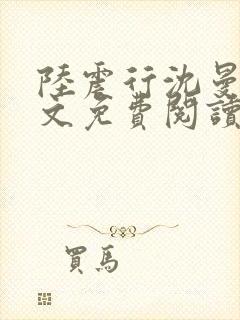 陸震行沈曼
文免費閱讀
買馬